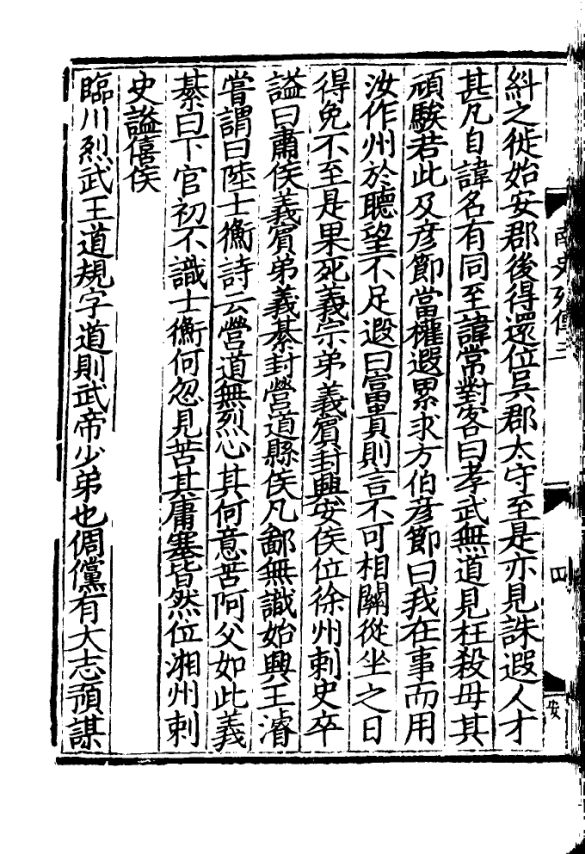 糾之徙始安郡後得還位吳郡太守至是亦見誅遐人才
甚凡自諱名有同至諱常對客曰孝武無道見枉殺母其
頑騃若此及彦節當權遐累求方伯彦節曰我在事而用
汝作州於聽望不足遐曰富貴則言不可相關從坐之日
得免不至是果死義宗弟義賓封興安侯位徐州刺史卒
謚曰肅侯義賓弟義綦封營道縣侯凡鄙無識始興王濬
嘗謂曰陸士衡詩云營道無烈心其何意苦阿父如此義
綦曰下官初不識士衡何忽見苦其庸塞皆然位湘州刺
史謚僖侯
臨川烈武王道規字道則武帝少弟也倜儻有大志預謀
南史列傳三
四
安